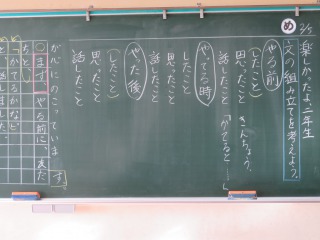 2/5
め
楽しかったよ、二年生
文の組み立てを考えよう。
やる前
(したこと)
思ったこと きんちょう。
話したこと 「かてると…」
やってる時
したこと
思ったこと
話したこと
やった後
(したこと)
思ったこと
話したこと
が心にのこっています。
○まず、やる前に、まだ
ちと